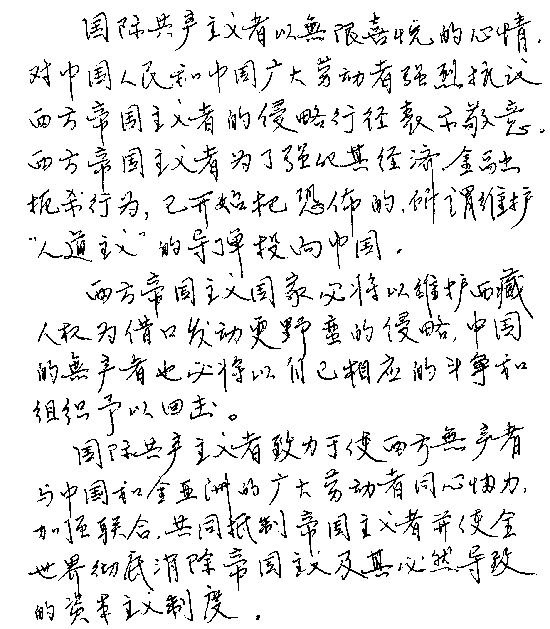 国际共产主义者以無限喜悦的心情，
对中国人民和中国广大劳动者强烈抗议
西方帝国主义者的侵略行径表示敬意。
西方帝国主义者为了强化其经济、金融
扼杀行为，已开始把恐怖的、所谓维护
“人道主义”的导弹投向中国。
西方帝国主义国家必将以维护西藏
人权为借口发动更野蛮的侵略，中国
的無产者也必将以自己相应的斗争和
组织予以回击。
国际共产主义者致力于使西方無产者
与中国和全亚洲的广大劳动者同心协力，
加强联合，共同抵制帝国主义者并使全
世界彻底消除帝国主义及其必然导致
的资本主义制度。